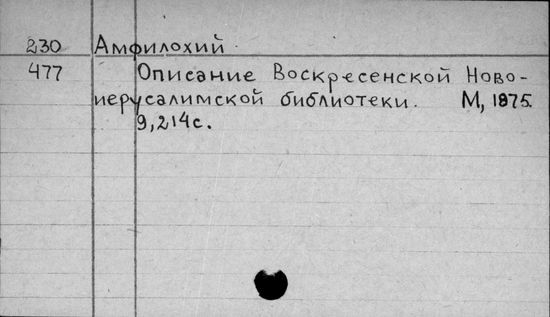 230 Амфилохий
477 Описание Воскресенской Ново-
иерусалимской библиотеки. М, 1875.
9, 214 с.